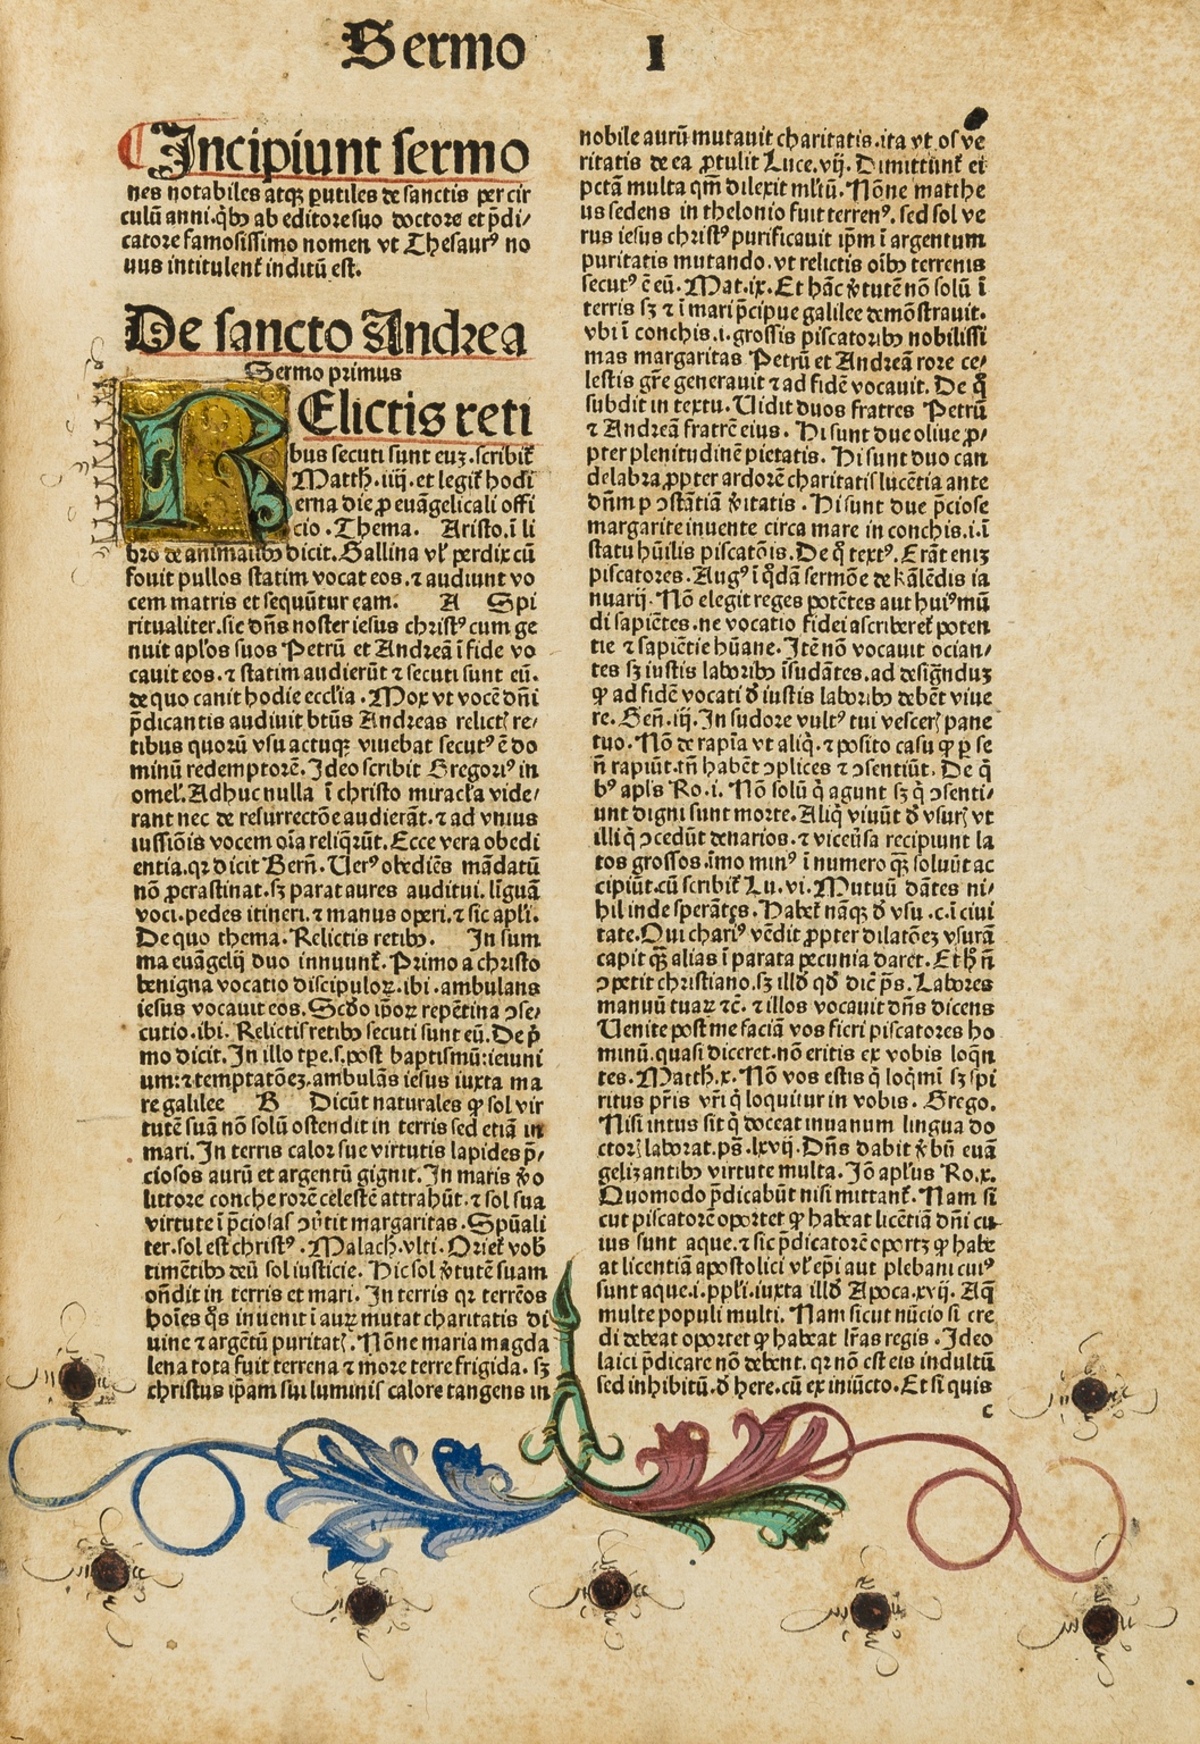 Sermo I
Incipiunt sermo
nes notabiles atqꝫ ꝑutiles de sanctis per cir
culū anni. q̇bꝰ ab editore suo doctore et p̄di/
catore famosissimo nomen vt Thesaurꝰ no
uus intitulent᷑ inditū est.
De sancto Andrea
Sermo primus
RElictis reti
bus secuti sunt euꝫ. scribit᷑
Matth. iiij. et legit᷑ hodi
erna die ꝓ euāgelicali offi
cio. Thema. Aristo. ī li
bro de animalibꝰ dicit. Gallina vl̓ perdix cū
fouit pullos statim vocat eos. ⁊ audiunt vo
cem matris et sequūtur eam. A Spi
ritualiter. sic dn̄s noster iesus christꝰ cum ge
nuit apl̓os suos Petrū et Andreā ī fide vo
cauit eos. ⁊ statim audierūt ⁊ secuti sunt eū.
de quo canit hodie eccl̓ia. Mox vt vocē dn̄i
p̄dicantis audiuit btūs Andreas relictꝭ re/
tibus quorū vsu actuqꝫ viuebat secutꝰ ē do
minū redemptorē. Ideo scribit Gregoriꝰ in
omel̓. Adhuc nulla ī christo miracl̓a vide/
rant nec de resurrectōe audierāt. ⁊ ad vnius
iussiōis vocem oīa reliq̄rūt. Ecce vera obedi
entia. qꝛ dicit Bern̄. Verꝰ obediēs mādatū
nō ꝓcrastinat. sꝫ parat aures auditui. līguā
voci. pedes itineri. ⁊ manus operi. ⁊ sic apl̓i.
De quo thema. Relictis retibꝰ. In sum
ma euāgelij duo innuunt᷑. Primo a christo
benigna vocatio discipuloꝝ. ibi. ambulans
iesus vocauit eos. Scd̓o ip̄oꝝ repētina ꝯse/
cutio. ibi. Relictis retibꝰ secuti sunt eū. De p̓
mo dicit. In illo tꝑe. s. post baptismū: ieiuni
um: ⁊ temptatōeꝫ. ambulās iesus iuxta ma
re galilee B Dicūt naturales ꝙ sol vir
tutē suā nō solū ostendit in terris sed etiā in
mari. In terris calor sue virtutis lapides p̄/
ciosos aurū et argentū gignit. In maris v̓o
littore conche rorē celestē attrahūt. ⁊ sol sua
virtute ī p̄ciosas ꝯv̓tit margaritas. Spūali
ter. sol est christꝰ. Malach̄. vlti. Oriet᷑ vob̄
timētibꝰ deū sol iusticie. Hic sol v̓tutē suam
on̄dit in terris et mari. In terris qꝛ terrēos
hoīes q̊s inuenit ī auꝝ mutat charitatis di
uine ⁊ argētū puritatꝭ. Nōne maria magda
lena tota fuit terrena ⁊ more terre frigida. sꝫ
christus ip̄am sui luminis calore tangens in
nobile aurū mutauit charitatis. ita vt os ve
ritatis de ea ꝓtulit Luce. vij. Dimittunt᷑ ei
pctā multa qm̄ dilexit ml̓tū. Nōne matthe
us sedens in thelonio fuit terrenꝰ. sed sol ve
rus iesus christꝰ purificauit ip̄m ī argentum
puritatis mutando. vt relictis oībꝰ terrenis
secutꝰ ē eū. Mat. ix. Et hāc v̓tutē nō solū ī
terris sꝫ ⁊ ī mari p̄cipue galilee demōstrauit.
vbi ī conchis. i. grossis piscatoribꝰ nobilissi
mas margaritas Petrū et Andreā rore ce/
lestis gr̄e generauit ⁊ ad fidē vocauit. De q̊
subdit in textu. Vidit duos fratres Petrū
⁊ Andreā fratrē eius. Hi sunt due oliue ꝓ/
pter plenitudinē pietatis. Hi sunt duo can
delabra ꝓpter ardorē charitatis lucētia ante
dn̄m p ꝯstātiā v̓itatis. Hi sunt due p̄ciose
margarite inuente circa mare in conchis. i. ī
statu hūilis piscatōis. De q̊ textꝰ. Erāt eniꝫ
piscatores. Augꝰ ī q̊dā sermōe de kālēdis ia
nuarij. Nō elegit reges potētes aut huiꝰ mū
di sapiētes. ne vocatio fidei ascriberet᷑ poten
tie ⁊ sapiētie hūane. Itē nō vocauit ocian/
tes sꝫ iustis laboribꝰ īsudātes. ad designāduꝫ
ꝙ ad fidē vocati d̓ iustis laboribꝰ debēt viue
re. Gen̄. iij. In sudore vultꝰ tui vescerꝭ pane
tuo. Nō de rapīa vt aliq̇. ⁊ posito casu ꝙ ꝑ se
n̄ rapiūt. tn̄ habēt ꝯplices ⁊ ꝯsentiūt. De q̇
bꝰ apl̓s Ro. i. Nō solū q̇ agunt sꝫ q̇ ꝯsenti/
unt digni sunt morte. Aliq̇ viuūt d̓ vsurꝭ vt
illi q̇ ꝯcedūt denarios. ⁊ viceūsa recipiunt la
tos grossos. īmo minꝰ ī numero qꝫ̄ soluūt ac
cipiūt. cū scribit᷑ Lu. vi. Mutuū dātes ni/
hil inde sperātes. Habet᷑ nāqꝫ d̓ vsu. c. ī ciui
tate. Qui chariꝰ vēdit ꝓpter dilatōeꝫ vsurā
capit qꝫ̄ alias ī parata pecunia daret. Et h̊ n̄
ꝯpetit christiano. sꝫ illd̓ qd̓ dic̄ p̄s. Labores
manuū tuaꝝ ⁊c̄. ⁊ illos vocauit dn̄s dicens
Venite post me faciā vos fieri piscatores ho
minū. quasi diceret. nō eritis ex vobis loq̄n
tes. Matth. x. Nō vos estis q̇ loq̇mī sꝫ spi
ritus pr̄is vr̄i q̇ loquitur in vobis. Grego.
Nisi intus sit q̇ doceat inuanum lingua do
ctorꝭ laborat. ps̄. lxvij. Dn̄s dabit v̓bū euā
gelizantibꝰ virtute multa. Jō apl̓us Ro. x.
Quomodo p̄dicabūt nisi mittant᷑. Nam si
cut piscatorē oportet ꝙ habeat licētiā dn̄i cu
ius sunt aque. ⁊ sic p̄dicatorē oportꝫ ꝙ habe
at licentiā apostolici vl̓ ep̄i aut plebani cuiꝰ
sunt aque. i. ppl̓i. iuxta illd̓ Apoca. xvij. Aq̄
multe populi multi. Nam sicut nūcio si cre
di debeat oportet ꝙ habeat lr̄as regis. Ideo
laici p̄dicare nō debent. qꝛ nō est eis indultū
sed inhibitū. d̓ here. cū ex iniūcto. Et si quis
c